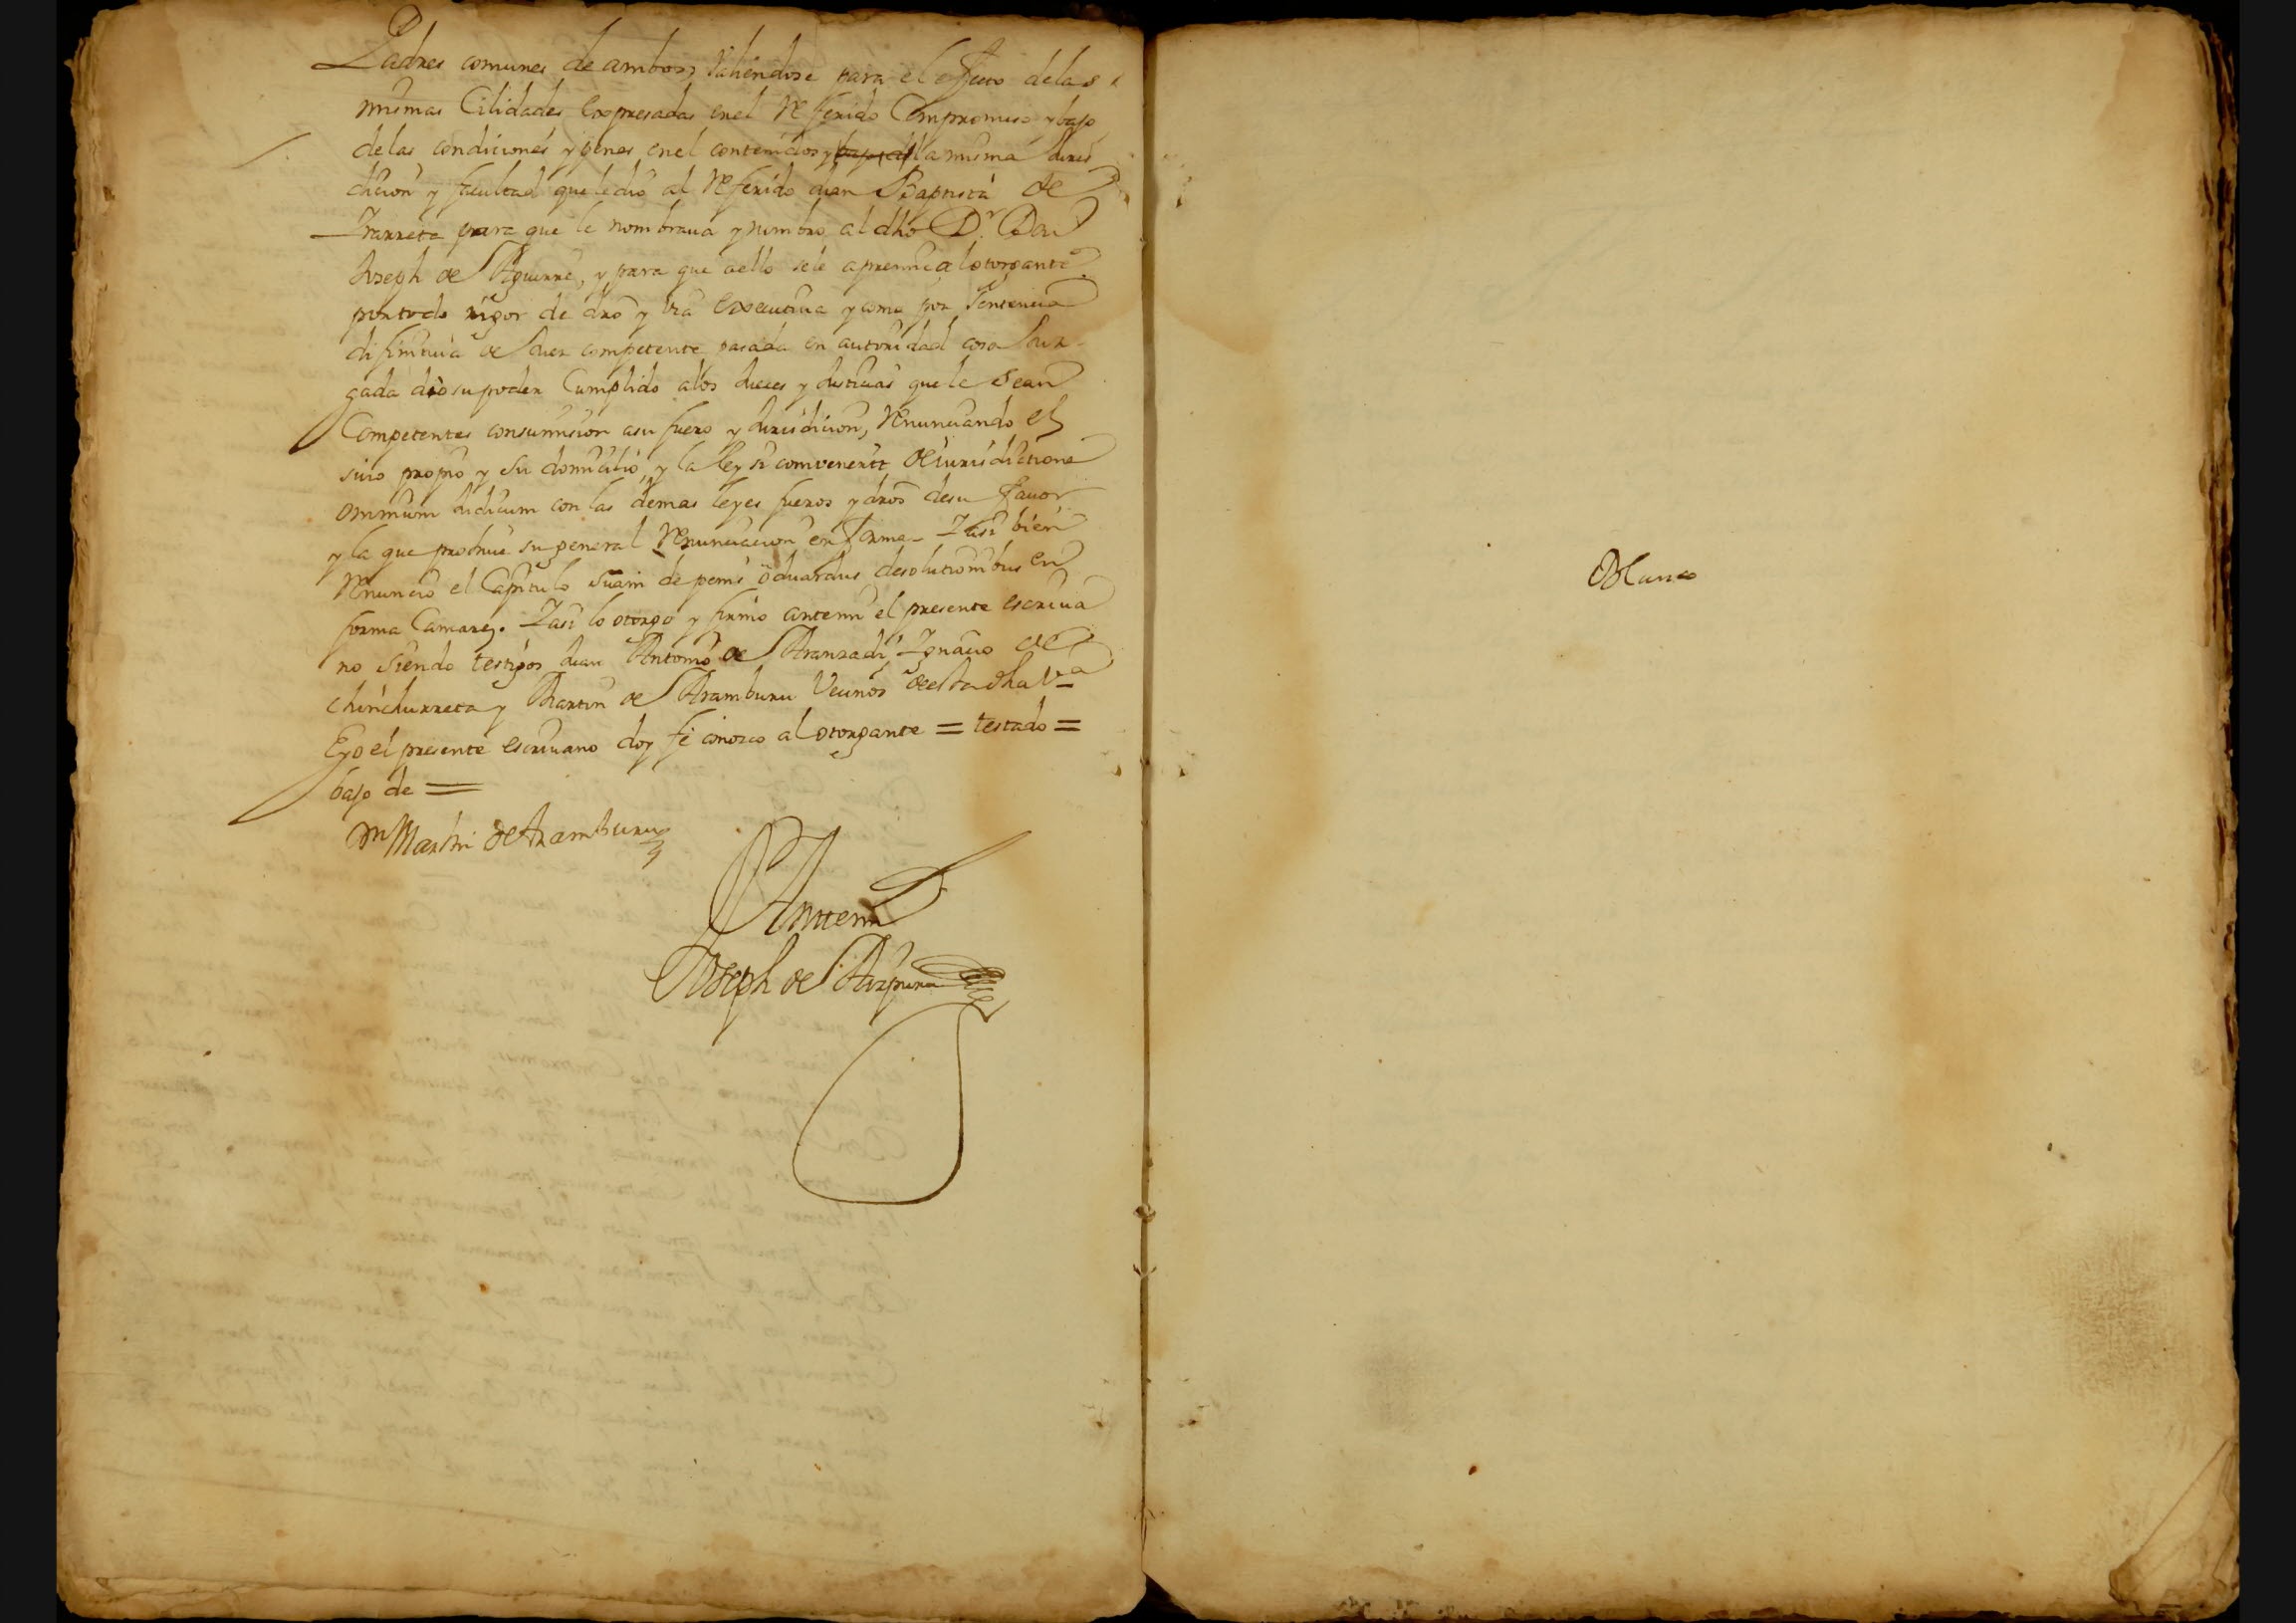 Padres comunes de ambos, Valiendose para el efecto delas
mismas Calidades Expresadas enel Referido Compromiso y bajo
delas condiciones y penas enel contenidos y bajo de la misma Juris
dicion y facultad que le dio al Referido Juan Baptista de
Irarreta para que le nombraua y nombro al dho Dr. Don
Joseph de Aguirre, y para que aello sele apremie al otorgante
por todo rigor de dro y via executiua y como por Sentencia
difinitiua de Juez competente pasada en autoridad cosa Juz-
gada dio su poder Cumplido alos Jueces y Justicias que le sean
Competentes consumision asu fuero y Jurisdicion, Renunciando el
suio propio y su domicilio y la ley si convenerit de iurisdictione
omnium Judicum con las demas leyes fueros y dros desu favor
y la que prohiue su general Renunciacion en forma - Y asi bien
Renuncio el Capitulo suam de penis oduardus desolutionibus en
forma Camare. Y asi lo otorgo y firmo antemi el presente escriua
no siendo testigos Juan Antonio de Aranzadi Ignacio de
Chinchurreta y Martin de Aramburu Vecinos de esta dha Va
E yo el presente escriuano doy fe conozco al otorgante = testado =
bajo de =
Martin de Aramburu
Antemi
Joseph de Aizpurua
Blanco